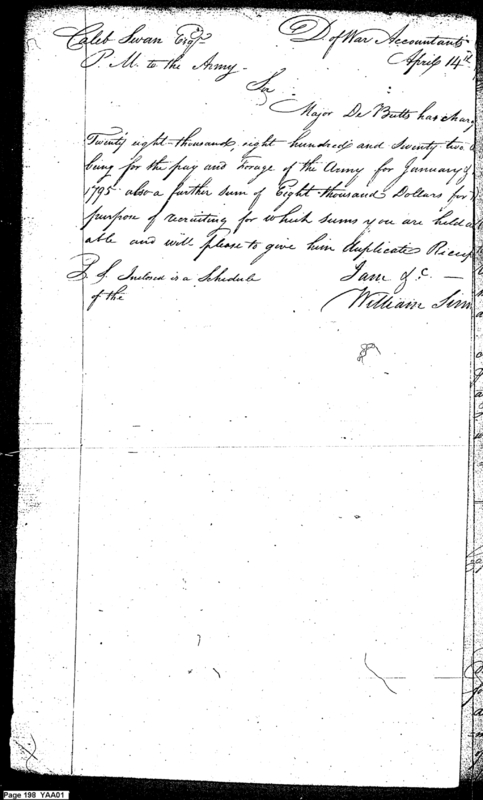 Caleb Swan Esqr. D of War Accountants
P. M. to the Army. April 14th
Sir
Major De Butts has charg
Twenty eight thousand, eight hundred and twenty two
being for the pay and Forage of the Army for January &
1795 also a further sum of Eight thousand Dollars for
purpose of recruiting for which sums you are held a
able and will please to give him duplicate Receip
P. S. Inclosed is a Schedule I am &c. —
of the William Sim
Page 198 YAA01